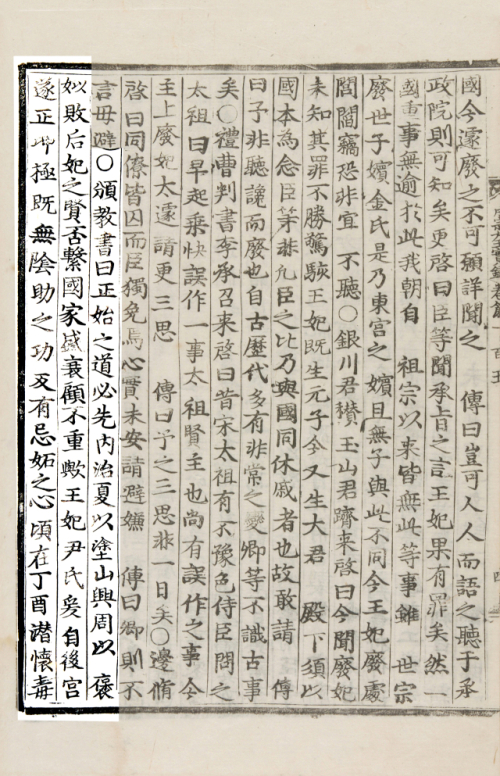 國今遽廢之不可願詳聞之　傳曰豈可人人而語之聽于承
政院則可知矣更啓曰臣等聞承旨之言王妃果有罪矣然一
國重事無逾於此我朝自　祖宗以來皆無此等事雖　世宗
廢世子嬪金氏是乃東宮之嬪且無子與此不同今王妃廢處
閭閻竊恐非宜　不聽○銀川君欑玉山君躋来啓曰今聞廢妃
未知其罪不勝驚駭王妃既生元子今又生大君　殿下須以
國本為念臣等非凡臣之比乃與國同休戚者也故敢請　傳
曰予非聽讒而廢也自古歷代多有非常之變卿等不識古事
矣○禮曹判書李承召来啓曰昔宋太祖有不豫色侍臣問之
太祖曰早起乘快誤作一事太祖賢主也尚有誤作之事今
主上廢妃太遽請更三思　傳曰予之三思非一日矣○邊脩
啓曰同僚皆囚而臣獨免焉心實未安請避嫌　傳曰卿則不
言毋避○頒教書曰正始之道必先內治夏以塗山興周以褒
姒敗后妃之賢否繫國家盛衰顧不重歟王妃尹氏爰自後宮
遂正坤極既無陰助之功反有忌妬之心頃在丁酉潛懷毒